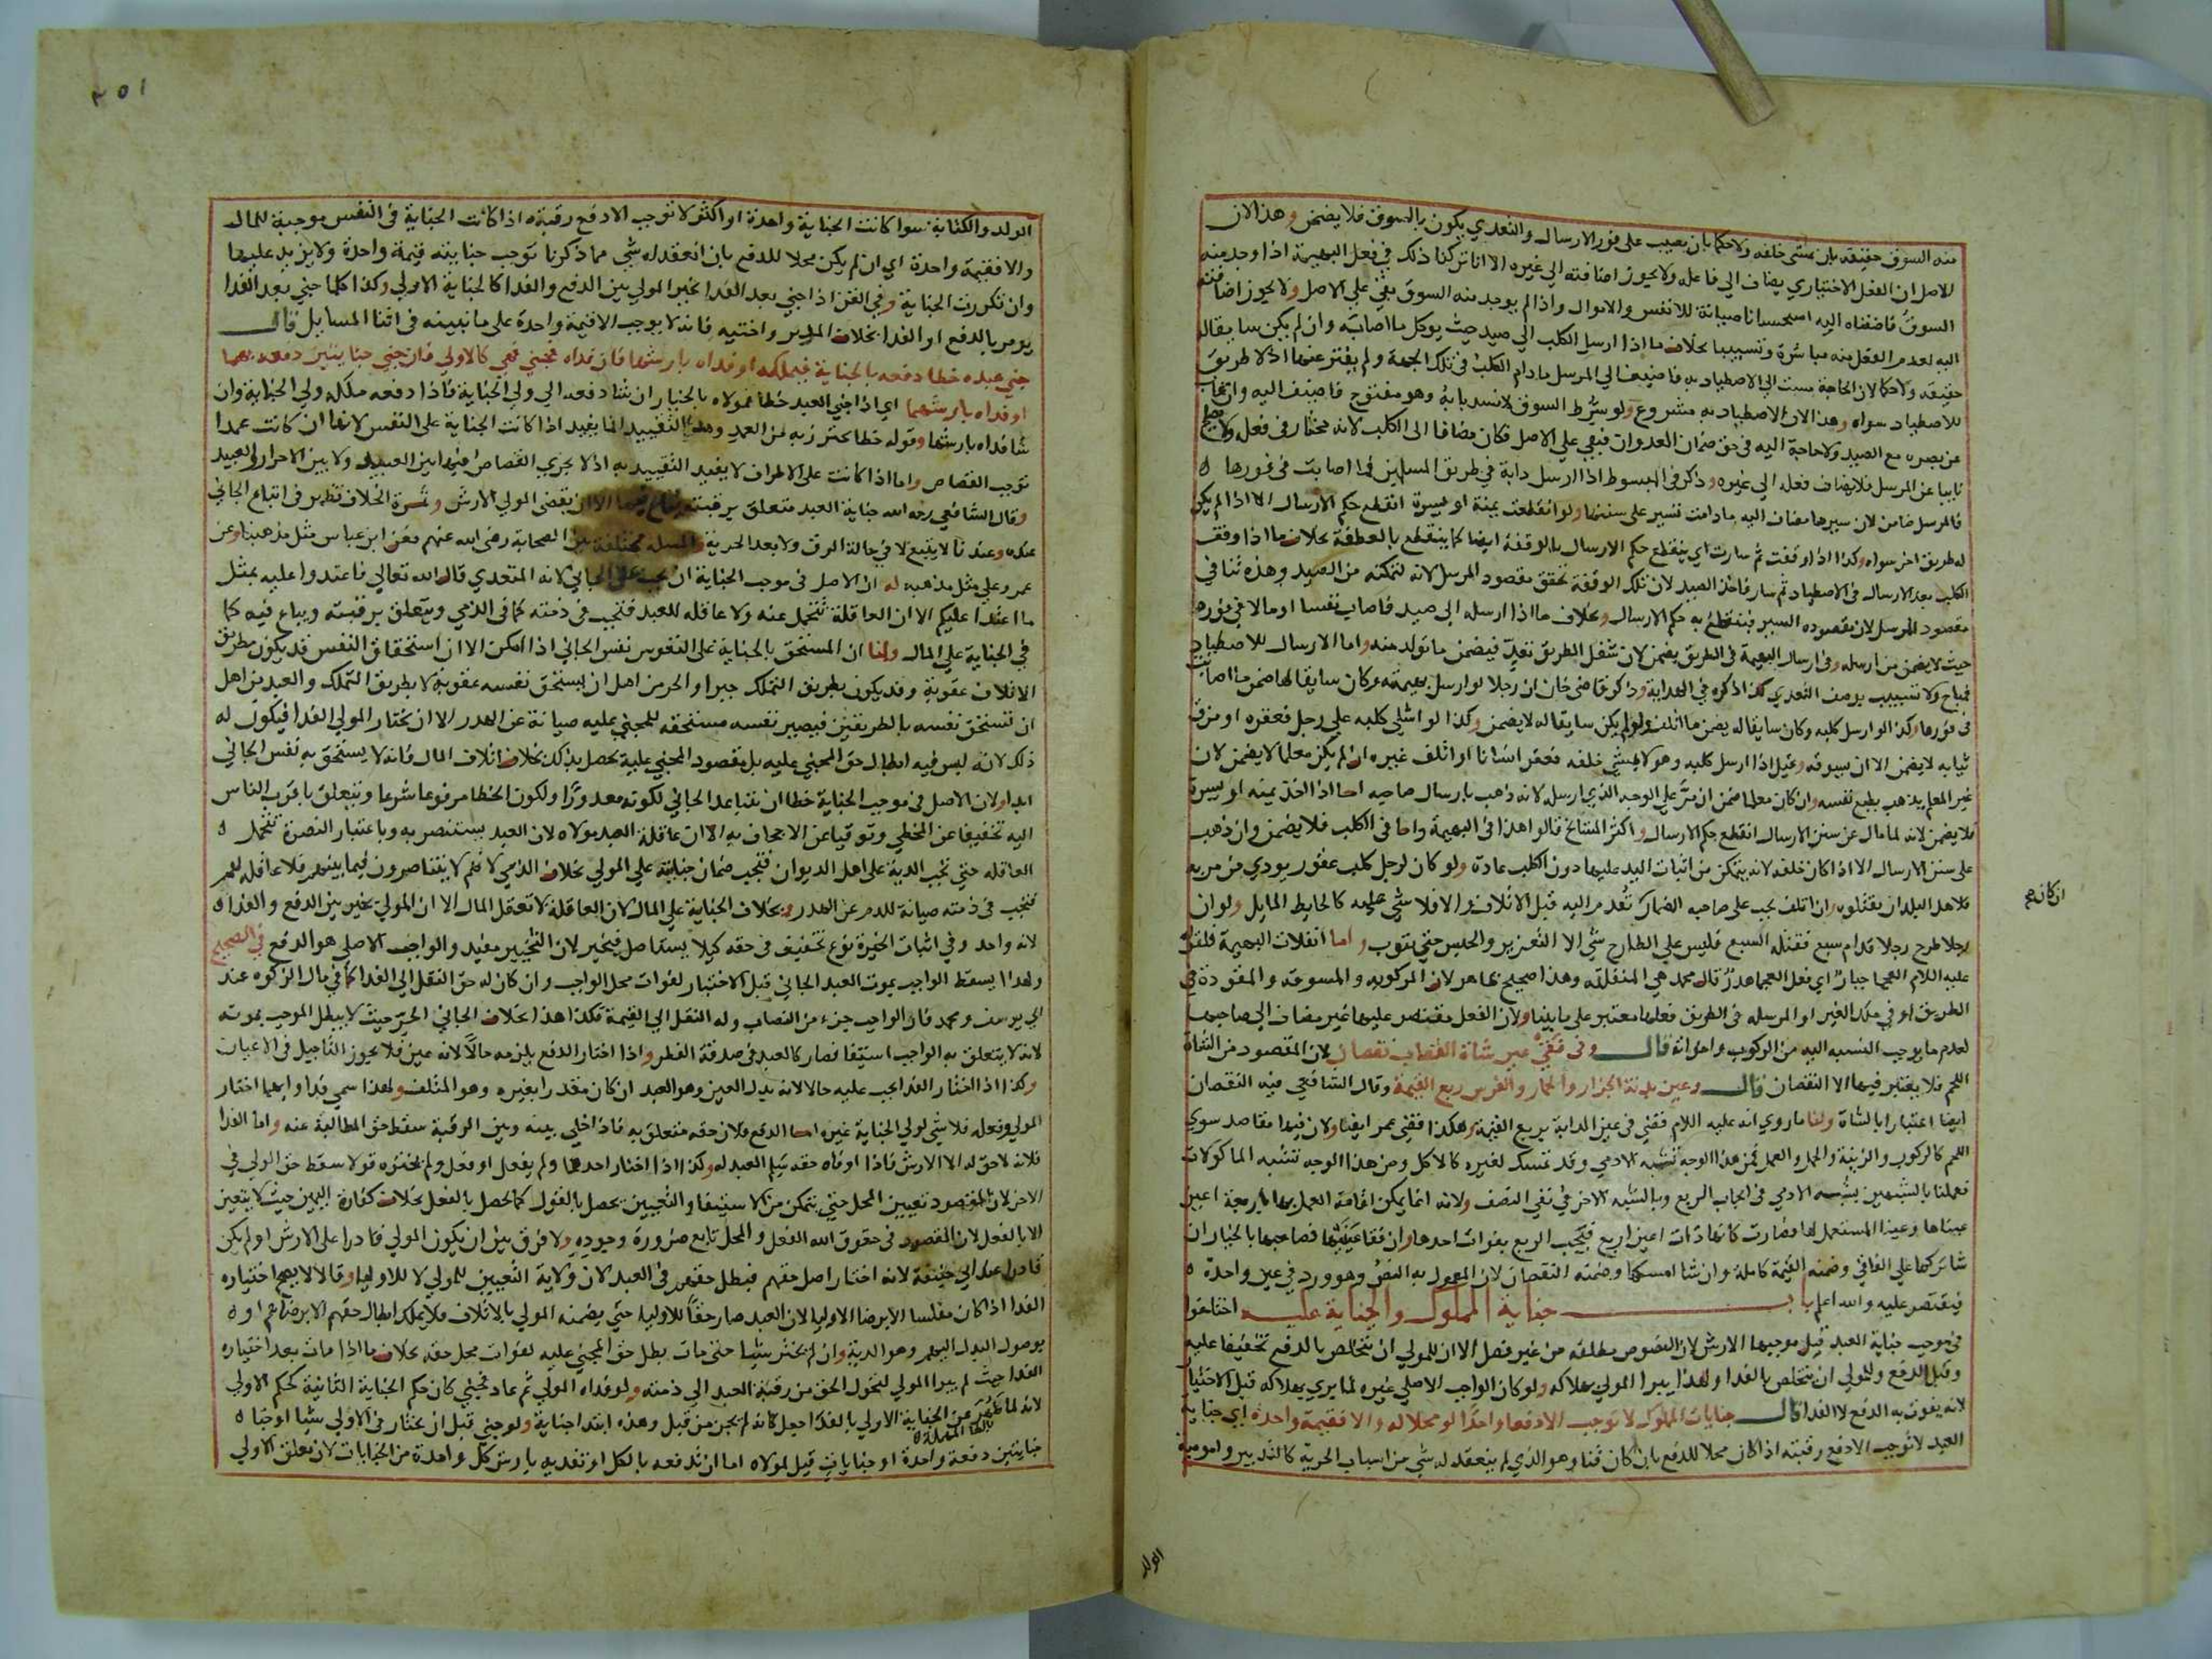 منه السوق حقيقة بان يمشي خلفه ولا حكما بان يصيب على فور الارسال والتعدي يكون بالسوق فلا يضمن وهذا لان
الاصل ان الفعل الاختياري يضاف الي فاعله ولا يجوز اضافته الي غيره الا انا تركنا ذلك في فعل البهيمة اذا وجد منه
السوق فاضفناه اليه استحسانا صيانة للانفس والاموال واذا لم يوجد منه السوق بقي علي الاصل ولا يجوز اضافته
اليه لعدم الفعل منه مباشرة وتسبيبا بخلاف ما اذا ارسل الكلب الي صيد حيث يوكل ما اصابه وان لم يكن سايقا له
حقيقة ولا حكما لان الحاجة مست الي الاصطياد به فاضيف الي المرسل ما دام الكلب في تلك الجهة ولم يفتر عنها اذ لا طريق
للاصطياد سواه وهذا لان الاصطياد به مشروع ولو شرط السوق لانسد بابه وهو مفتوح فاضيف اليه وان غاب
عن بصره مع الصيد ولا حاجة اليه في حق ضمان العدوان فبقي علي الاصل فكان مضافا الى الكلب لانه مختار في فعله ولا يصلح
نايبا عن المرسل فلا يضاف فعله الي غيره وذكر في المبسوط اذا ارسل دابة في طريق المسلمين فما اصابت في فورها ه
فالمرسل ضامن لان سيرها مضاف اليه ما دامت تسير على سننها ولو انعطفت يمنة او يسرة انقطع حكم الارسال الا اذا لم يكن
له طريق اخر سواه وكذا اذا وقفت ثم سارت اي ينقطع حكم الارسال بالوقفة ايضا كما ينقطع بالعطفة بخلاف ما اذا وقف
الكلب بعد الارسال في الاصطياد ثم سار فاخذ الصيد لان تلك الوقفة تحقق مقصود المرسل لانه لتمكنه من الصيد وهذه تنافي
مقصود المرسل لان مقصوده السير فينقطع به حكم الارسال وبخلاف ما اذا ارسله الى صيد فاصاب نفسا او مالا في فوره
حيث لا يضمن من ارسله وفي ارسال البهيمة في الطريق يضمن لان شغل الطريق تعد فيضمن ما تولد منه واما الارسال للاصطياد
فمباح ولا تسبيب بوصف التعدي كذا ذكره في الهداية وذكر قاضي خان ان رجلا لو ارسل بهيمة وكان سايقا لها ضمن ما اصابت
في فورها وكذا لو ارسل كلبه وكان سايقا له يضمن ما اتلف ولو لم يكن سايقا له لا يضمن وكذا لو اشلي كلبه علي رجل فعقره او مزق
ثيابه لا يضمن الا ان يسوقه وقيل اذا ارسل كلبه وهو لا يمشي خلفه فعقر انسانا او اتلف غيره ان لم يكن معلما لا يضمن لان
غير المعلم يذهب بطبع نفسه وان كان معلما ضمن ان مر علي الوجه الذي ارسله لانه ذهب بارسال صاحبه اما اذا اخذ يمنه او يسرة
فلا يضمن لانه لما مال عن سنن الارسال انقطع حكم الارسال واكثر المشايخ قالوا هذا في البهيمة واما في الكلب فلا يضمن وان ذهب
على سنن الارسال الا اذا كان خلفه لانه يتمكن من اثبات اليد عليها دون الكلب عادة ولو كان لرجل كلب عقور يوذي من مر به
فلاهل البلد ان يقتلوه وان اتلف يجب علي صاحبه الضمان تقدم اليه قبل الاتلاف والا فلا شي عليه كالحايط المايل ولو ان
رجلا طرح رجلا قدام سبع فقتله السبع فليس علي الطارح شي الا التعزير والحبس حتي يتوب واما انفلات البهيمة فلقوله
عليه السلام العجما جبار اي فعل العجما هدر قال محمد هي المنفلتة وهذا صحيح ظاهر لان المركوبه والمسوقه والمقودة في
الطريق او في ملك الغير او المرسله في الطريق فعلها معتبر على ما بينا ولان الفعل مقتصر عليها غير مضاف الى صاحبها
لعدم ما يوجب النسبه اليه من الركوب واخواته قال وفي فقئ عين شاة القصاب نقصان لان المقصود من الشاة
اللحم فلا يعتبر فيها الا النقصان قال وعين بدنة الجزار والحمار والفرس ربع القيمة وقال الشافعي فيه النقصان
ايضا اعتبارا بالشاة ولنا ما روي انه عليه السلام قضي في عين الدابة بربع القيمة وهكذا قضي عمر ايضا ولان فيها مقاصد سوي
اللحم كالركوب والزينة والحمل والعمل فمن هذا الوجه تشبه الادمي وقد تمسك لغيره كالاكل ومن هذا الوجه تشبه الماكولات
فعملنا بالشبهين بشبه الادمي في ايجاب الربع وبالشبه الاخر في نفي النصف ولانه انما يمكن اقامة العمل بها باربعة اعين
عيناها وعينا المستعمل لها فصارت كانها ذات اعين اربع فيجب الربع بفوات احدها وان فقا عينيها فصاحبها بالخيار ان
شا تركها علي الفاقي وضمنه القيمة كاملة وان شا امسكها وضمنه النقصان لان المعمول به النص وهو ورد في عين واحدة ه
فيقتصر عليه والله اعلم باب جناية المملوك والجناية عليه اختلفوا
في موجب جناية العبد قيل موجبها الارش لان النصوص مطلقه من غير فصل الا ان للمولي ان يتخلص بالدفع تخفيفا عليه
وقيل الدفع وللمولي ان يتخلص بالفدا ولهذا يبرا المولي بهلاكه ولو كان الواجب الاصلي غيره لما بري بهلاكه قبل الاختيار
لانه يفوت به الدفع لا الفدا قال جنايات المملوك لا توجب الا دفعا واحدا لو محلا له والا فقيمة واحدة اي جناية
العبد لا توجب الا دفع رقبته اذا كان محلا للدفع بان كان قنا وهو الذي لم ينعقد له شي من اسباب الحرية كالتدبير وامومية
الولد
٢٥١
الولد والكتابة سوا كانت الجناية واحدة او اكثر لا توجب الا دفع رقبته اذا كانت الجناية في النفس موجبة للمال
والا فقيمة واحدة اي ان لم يكن محلا للدفع بان انعقد له شي مما ذكرنا توجب جنايته قيمة واحدة ولا يزيد عليها
وان تكررت الجناية وفي القن اذا جني بعد الفدا يخير المولي بين الدفع والفدا كالجناية الاولي وكذا كلما جني بعد الفدا
يومر بالدفع او الفدا بخلاف المدبر واختيه فانه لا يوجب الا قيمة واحدة على ما نبينه في اثنا المسايل قال
جني عبده خطا دفعه بالجناية فيملكه او فداه بارشها فان فداه فجني فهي كالاولي فان جني جنايتين دفعه بهما
او فداه بارشهما اي اذا جني العبد خطا فمولاه بالخيار ان شا دفعه الي ولي الجناية فاذا دفعه ملكه ولي الجناية وان
شا فداه بارشها وقوله خطا يحترز به عن العمد وهذا التقييد انما يفيد اذا كانت الجناية على النفس لانها ان كانت عمدا
توجب القصاص واما اذا كانت على الاطراف لا يفيد التقييد به اذ لا يجري القصاص فيها بين العبيد ولا بين الاحرار والعبيد
وقال الشافعي رحمه الله جناية العبد متعلق برقبته يباع فيها الا ان يقضي المولي الارش وثمرة الخلاف تظهر في اتباع الجاني
عنده وعندنا لا يتبع لا في حالة الرق ولا بعد الحرية والمسلة مختلفة بين الصحابة رضي الله عنهم فعن ابن عباس مثل مذهبنا وعن
عمر وعلي مثل مذهبه له ان الاصل في موجب الجناية ان يجب على الجاني لانه المتعدي قال الله تعالي فاعتدوا عليه بمثل
ما اعتدا عليكم الا ان العاقلة تتحمل عنه ولا عاقلة للعبد فتجب في ذمته كما في الذمي ويتعلق برقبته ويباع فيه كما
في الجناية علي المال ولنا ان المستحق بالجناية على النفوس نفس الجاني اذا امكن الا ان استحقاق النفس قد يكون بطريق
الاتلاف عقوبة وقد يكون بطريق التملك جبرا والحر من اهل ان يستحق نفسه عقوبة لا بطريق التملك والعبد من اهل
ان تستحق نفسه بالطريقين فيصير نفسه مستحقه للمجني عليه صيانة عن الهدر الا ان يختار المولي الفدا فيكون له
ذلك لانه ليس فيه ابطال حق المجني عليه بل مقصود المجني عليه يحصل بذلك بخلاف اتلاف المال فانه لا يستحق به نفس الجاني
ابدا ولان الاصل في موجب الجناية خطا ان يتباعد الجاني لكونه معذورا ولكون الخطا مرفوعا شرعا ويتعلق باقرب الناس
اليه تخفيفا عن المخطي وتوقيا عن الاجحاف به الا ان عاقلة العبد مولاه لان العبد يستنصر به وباعتبار النصرة تتحمل ه
العاقله حتي تجب الدية على اهل الديوان فتجب ضمان جنايته علي المولي بخلاف الذمي لانهم لا يتناصرون فيما بينهم فلا عاقلة لهم
فتجب في ذمته صيانة للدم عن الهدر وبخلاف الجناية علي المال لان العاقلة لا تعقل المال الا ان المولي يخير بين الدفع والفدا ه
لانه واحد وفي اثبات الخيرة نوع تخفيف في حقه كيلا يستاصل فيخير لان التخيير مفيد والواجب الاصلي هو الدفع في الصحيح
ولهذا يسقط الواجب بموت العبد الجاني قبل الاختيار لفوات محل الواجب وان كان له حق النقل الي الفدا كما في مال الزكوه عند
ابي يوسف ومحمد فان الواجب جزء من النصاب وله النقل الي القيمة فكذا هذا بخلاف الجاني الحر حيث لا يبطل الموجب بموته
لانه لا يتعلق به الواجب استيفا فصار كالعبد في صدقة الفطر واذا اختار الدفع يلزمه حالا لانه عين فلا يجوز التاجيل في الاعيان
وكذا اذا اختار الفدا يجب عليه حالا لانه بدل العين وهو العبد ان كان مقدرا بغيره وهو المتلف ولهذا سمي فدا وايهما اختار
المولي وفعله فلا شي لولي الجناية غيره اما الدفع فلان حقه متعلق به فاذا خلي بينه وبين الرقبة سقط حق المطالبة عنه واما الفدا
فلانه لا حق له الا الارش فاذا اوفاه حقه سلم العبد له وكذا اذا اختار احدهما ولم يفعل او فعل ولم يختره قولا سقط حق الولي في
الاخر لان المقصود تعيين المحل حتي يتمكن من الاستيفا والتعيين يحصل بالقول كما يحصل بالفعل بخلاف كفارة اليمين حيث لا يتعين
الا بالفعل لان المقصود في حقوق الله الفعل والمحل تابع ضرورة وجوده ولا فرق بين ان يكون المولي قادرا على الارش او لم يكن
قادرا عند ابي حنيفة لانه اختار اصل حقهم فبطل حقهم في العبد لان ولاية التعيين للمولي لا للاوليا وقالا لا يصح اختياره
الفدا اذا كان مفلسا الا برضا الاوليا لان العبد صار حقا للاوليا حتي يضمنه المولي بالاتلاف فلا يملك ابطال حقهم الا برضاهم او ه
بوصول البدل اليهم وهو الدية وان لم يختر شيا حتي مات بطل حق المجني عليه لفوات محل حقه بخلاف ما اذا مات بعد اختياره
الفدا حيث لم يبرا المولي لتحول الحق من رقبة العبد الي ذمته ولو فداه المولي ثم عاد فجني كان حكم الجناية الثانية كحكم الاولي
لانه لما طهر عن الجناية الاولي بالفدا جعل كانه لم يجن من قبل وهذه ابتدا جناية ولو جني قبل ان يختار في الاولي شيا او جنا ه
بالطا المهملة ه
جنايتين دفعة واحدة او جنايات قيل لمولاه اما ان تدفعه بالكل او تفديه بارش كل واحدة من الجنايات لان تعلق الاولي